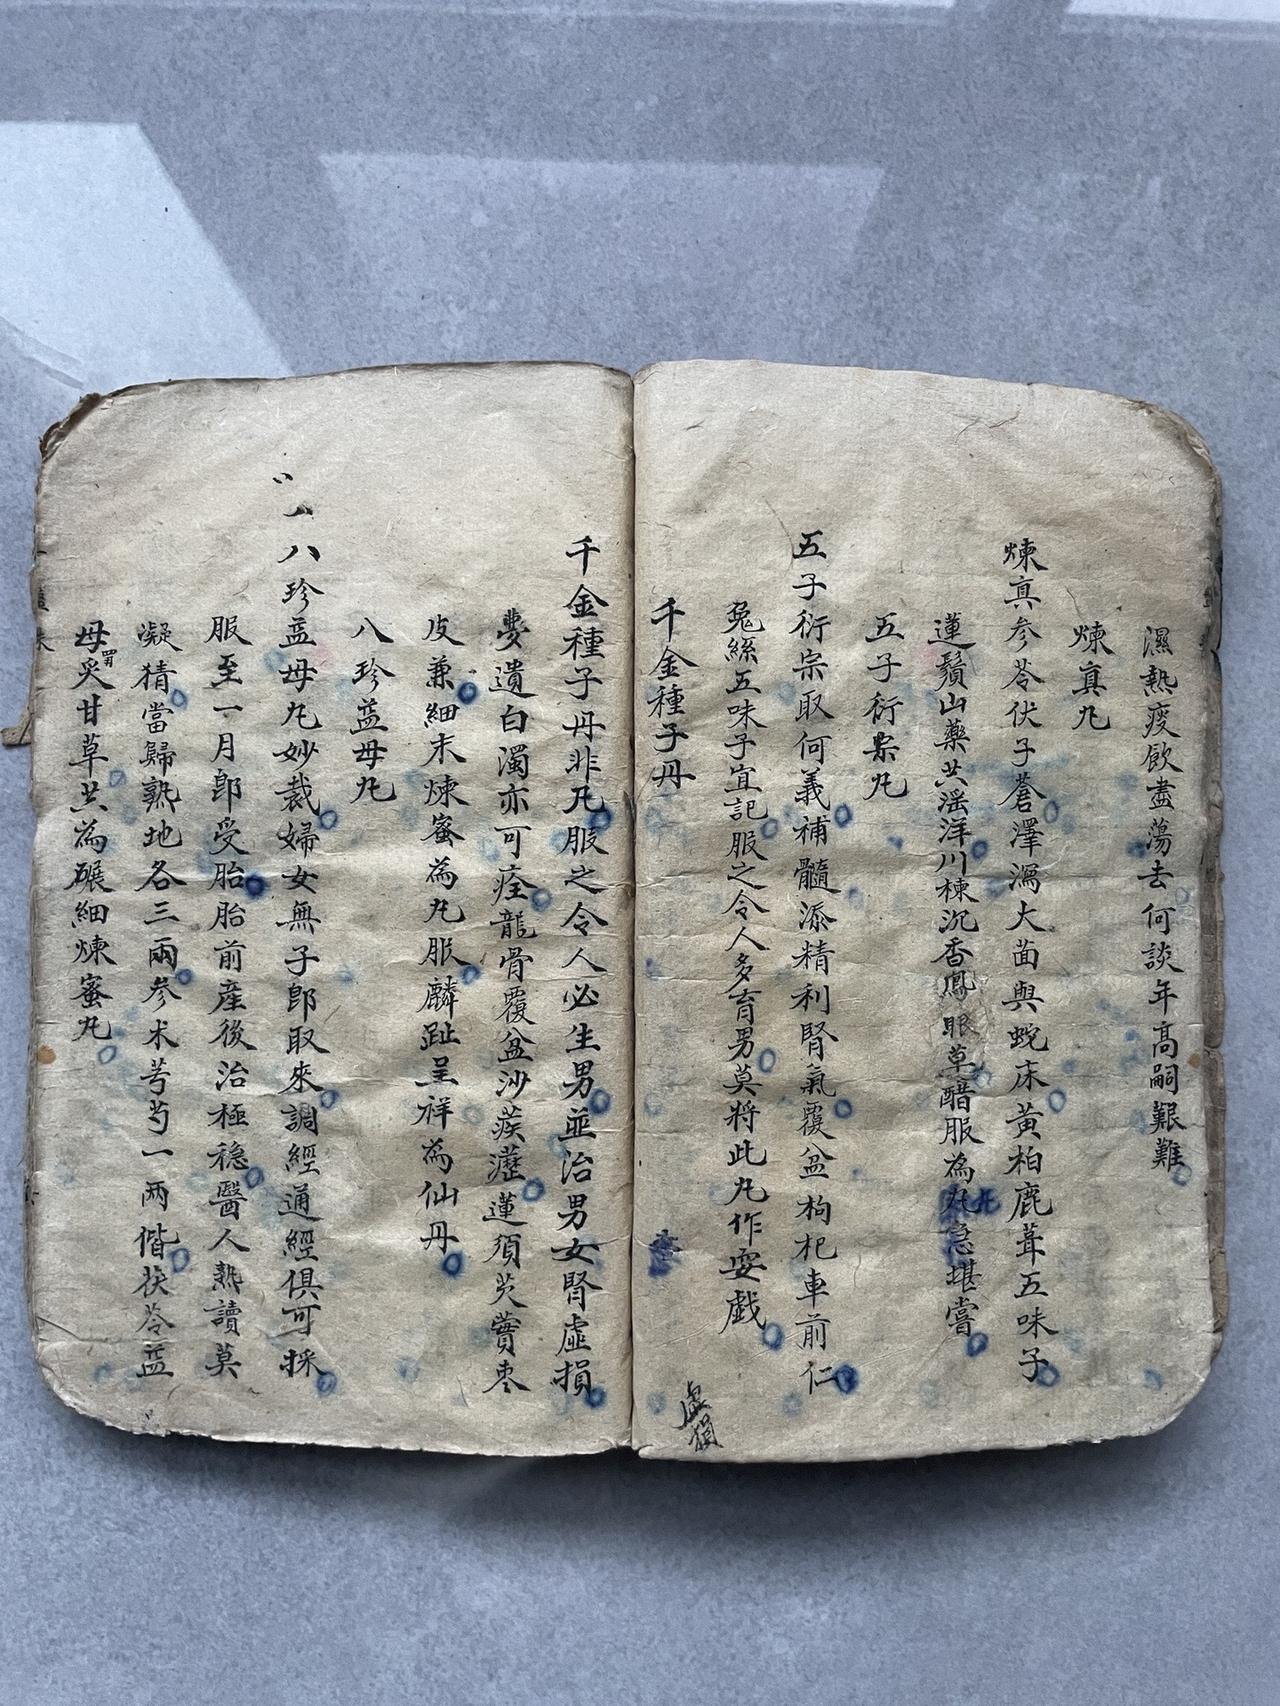 濕熱痰飲盡蕩去何談年高嗣艱難
煉真丸
煉真參苓伏子蒼澤瀉大茴與蛇床黄柏鹿茸五味子
蓮鬚山藥共滛洋川楝沉香鳳眼草醋服為丸急堪嘗
五子衍宗丸
五子衍宗取何義補髓添精利腎氣覆盆枸杞車前仁
兔絲五味子宜記服之令人多育男莫將此丸作耍戯
千金種子丹
虛損
千金種子丹非凡服之令人必生男並治男女腎虛損
夢遺白濁亦可痊龍骨覆盆沙蒺蔾蓮須芡蕒枣
皮兼細末煉蜜為丸服麟趾呈祥為仙丹
八珍益母丸
八珍益母丸妙裁婦女無子郎取來調經通經俱可採
服至一月郎受胎胎前産後治極穏醫人熟讀莫
凝猜當歸熟地各三兩參术芎芍一两偕茯苓益
母炙甘草共為碾細煉蜜丸